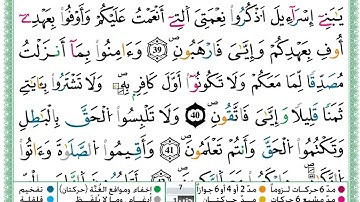 يَٰبَنِےٓ إِسْرَآءِيلَ اَ۟ذْكُرُواْ نِعْمَتِيَ اَ۬لتِےٓ أَنْعَمْتُ عَلَيْكُمْ وَأَوْفُواْ بِعَهْدِےٓ
أُوفِ بِعَهْدِكُمْ وَإِيَّٰيَ فَارْهَبُونِۖ 39 وَءَامِنُواْ بِمَآ أَنزَلْتُ
مُصَدِّقاٗ لِّمَا مَعَكُمْ وَلَا تَكُونُوٓاْ أَوَّلَ كَافِرِۢ بِهِۦۖ وَلَا تَشْتَرُواْ بِـَٔايَٰتِے
ثَمَناٗ قَلِيلاٗ وَإِيَّٰيَ فَاتَّقُونِۖ 40 وَلَا تَلْبِسُواْ اُ۬لْحَقَّ بِالْبَٰطِلِ
وَتَكْتُمُواْ اُ۬لْحَقَّ وَأَنتُمْ تَعْلَمُونَۖ 41 وَأَقِيمُواْ اُ۬لصَّلَوٰةَ وَءَاتُواْ
مدّ 6 حركات لزوماً مدّ 2 أو 4 أو 6 جوازاً إخفاء، ومواقع الغُنَّة (حركتان) تفخيم
مدّ مشبع 6 حركات مدّ حركتان إدغام، وما لا يُلفَظ قلقلة
7